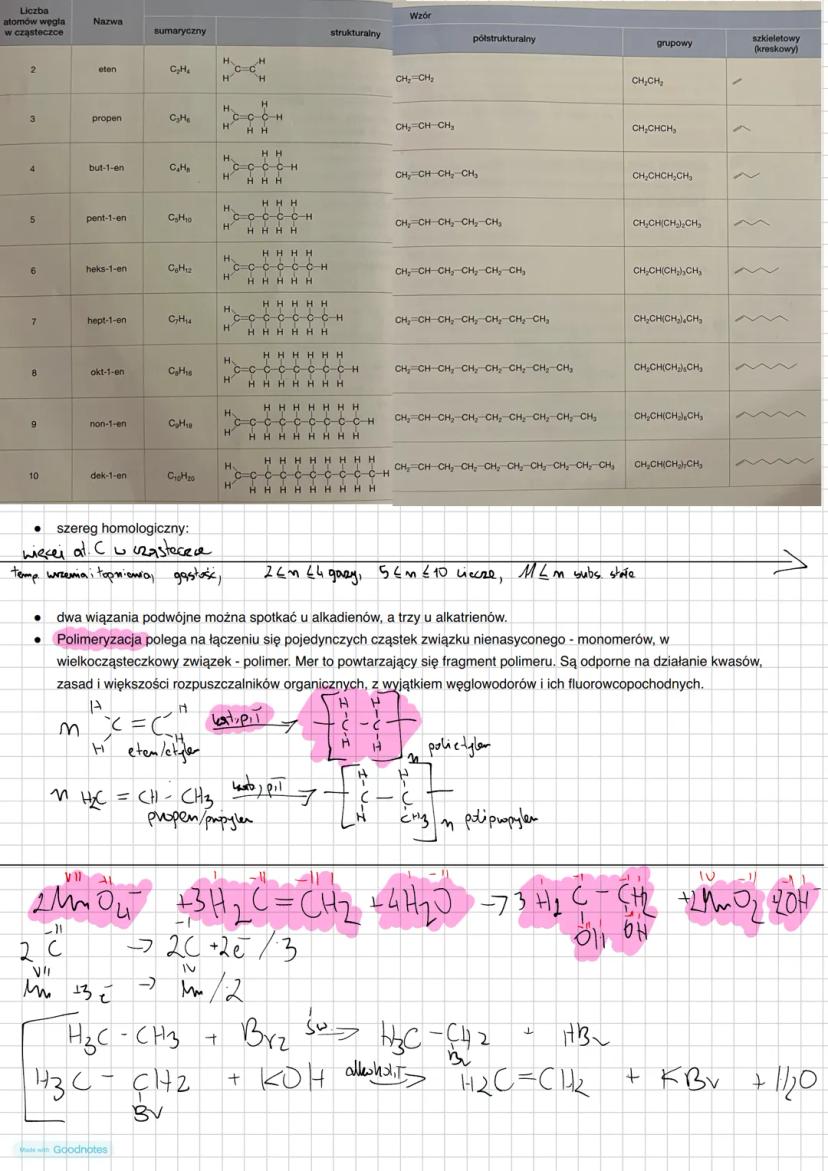 Liczba atomów węgla w cząsteczce Nazwa Wzór
sumaryczny strukturalny półstrukturalny grupowy szkieletowy (kreskowy)
2 eten C₂H₄ CH₂=CH₂ CH₂CH₂
3 propen C₃H₆ CH₂=CH–CH₃ CH₂CHCH₃
4 but-1-en C₄H₈ CH₂=CH–CH₂–CH₃ CH₂CHCH₂CH₃
5 pent-1-en C₅H₁₀ CH₂=CH–CH₂–CH₂–CH₃ CH₂CH(CH₂)₂CH₃
6 heks-1-en C₆H₁₂ CH₂=CH–CH₂–CH₂–CH₂–CH₃ CH₂CH(CH₂)₃CH₃
7 hept-1-en C₇H₁₄ CH₂=CH–CH₂–CH₂–CH₂–CH₂–CH₃ CH₂CH(CH₂)₄CH₃
8 okt-1-en C₈H₁₆ CH₂=CH–CH₂–CH₂–CH₂–CH₂–CH₂–CH₃ CH₂CH(CH₂)₅CH₃
9 non-1-en C₉H₁₈ CH₂=CH–CH₂–CH₂–CH₂–CH₂–CH₂–CH₂–CH₃ CH₂CH(CH₂)₆CH₃
10 dek-1-en C₁₀H₂₀ CH₂=CH–CH₂–CH₂–CH₂–CH₂–CH₂–CH₂–CH₂–CH₃ CH₂CH(CH₂)₇CH₃
• szereg homologiczny:
więcej at. C w cząsteczce
temp. wrzenia i topnienia, gęstość, 2≤n≤4 gazy, 5≤n≤10 ciecze, 11≤n subs. stałe
• dwa wiązania podwójne można spotkać u alkadienów, a trzy u alkatrienów.
• Polimeryzacja polega na łączeniu się pojedynczych cząstek związku nienasyconego - monomerów, w
wielkocząsteczkowy związek - polimer. Mer to powtarzający się fragment polimeru. Są odporne na działanie kwasów,
zasad i większości rozpuszczalników organicznych, z wyjątkiem węglowodorów i ich fluorowcopochodnych.
n C=C kat, p, T n
eten/etylen polietylen
n H₂C = CH - CH₃ kat, p, T n
propen/propylen polipropylen
2MnO₄⁻ +3H₂C=CH₂ +4H₂O → 3H₂C – CH₂ +2MnO₂ +2OH⁻
OH OH
2C → 2C +2e⁻ /·3
Mn +3e⁻ → Mn /·2
H₃C - CH₃ + Br₂ św. → H₃C - CH₂ + HBr
Br
H₃C - CH₂ + KOH alkohol, T → H₂C=CH₂ + KBr + H₂O
Br
Made with Goodnotes